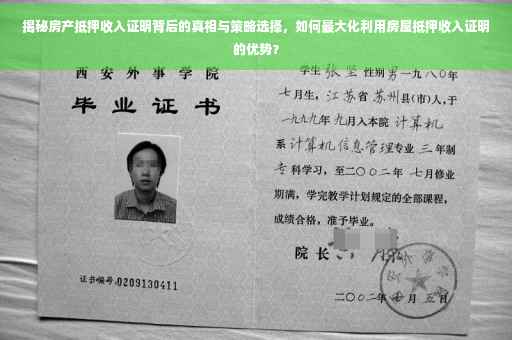 揭秘房产抵押收入证明背后的真相与策略选择，如何最大化利用房屋抵押收入证明
的优势？
西安外事学院
毕业证书
证书编号：0209130411
学生 张坚 性别 男 一九八〇年
七月生，江苏省苏州县(市)人，于
一九九九年九月入本院 计算机
系 计算机信息管理 专业 三 年制
专科学习，至二〇〇二年 七月修业
期满，学完教学计划规定的全部课程，
成绩合格，准予毕业。
院长
二〇〇二年 七月 五日